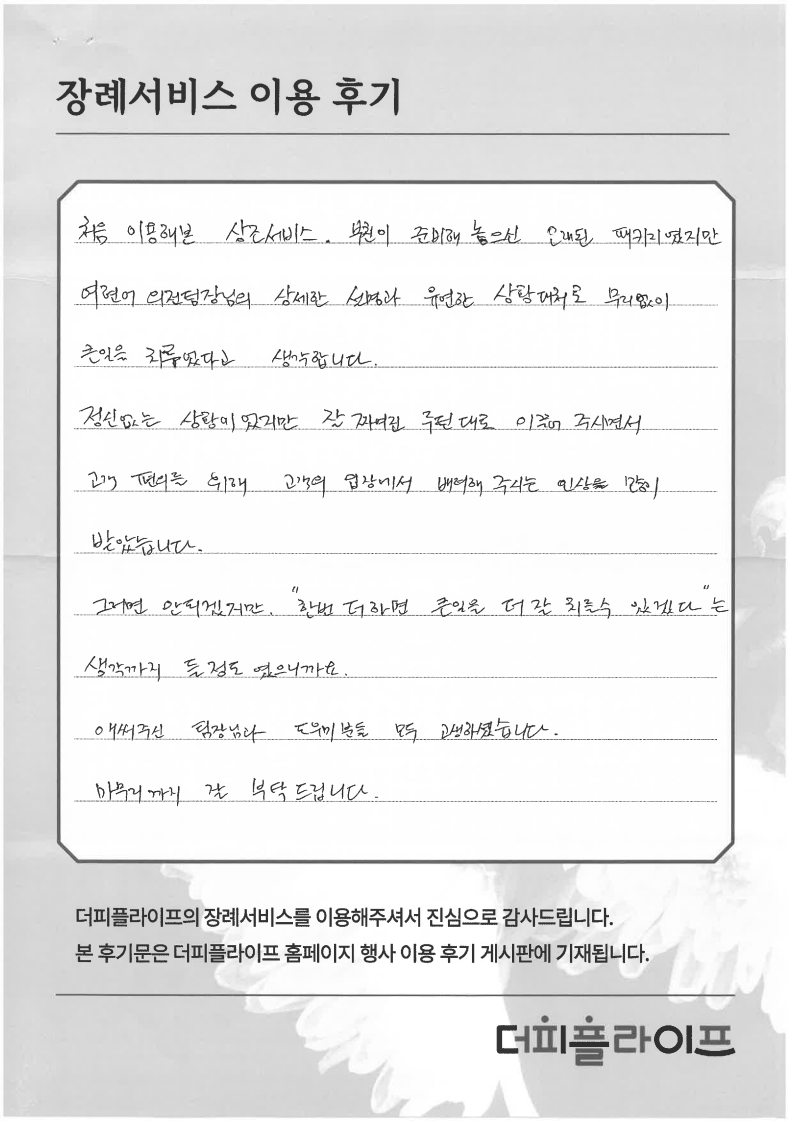 장례서비스 이용 후기
처음 이용해본 상조서비스. 부친이 준비해 놓으신 오래된 패키지였지만
여현어 의전팀장님의 상세한 설명과 유연한 상황대처로 무리없이
큰일을 치루었다고 생각합니다.
정신없는 상황이었지만 잘 짜여진 루틴대로 이끌어 주시면서
고객 편의를 위해 고객의 입장에서 배려해 주시는 인상을 많이
받았습니다.
그러면 안되겠지만, "한번 더하면 큰일을 더 잘 치를수 있겠다"는
생각까지 들정도 였으니까요.
애써주신 팀장님과 도우미분들 모두 고생하셨습니다.
마무리까지 잘 부탁드립니다.
더피플라이프의 장례서비스를 이용해주셔서 진심으로 감사드립니다.
본 후기문은 더피플라이프 홈페이지 행사 이용 후기 게시판에 기재됩니다.
더피플라이프